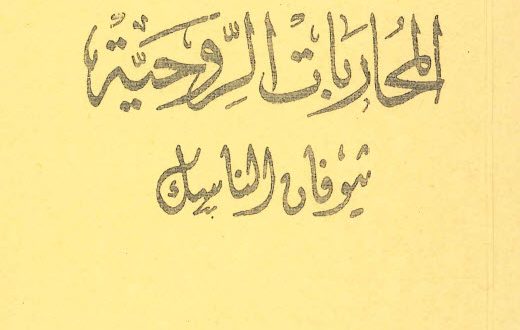 المحُاربَات الرِّوحيَّة
ثيوْفان الناسِك